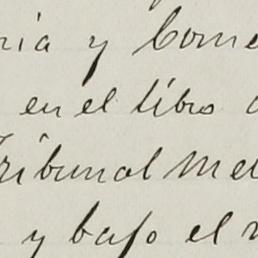 ria y Come
en el libro
Tribunal Me
y bajo el